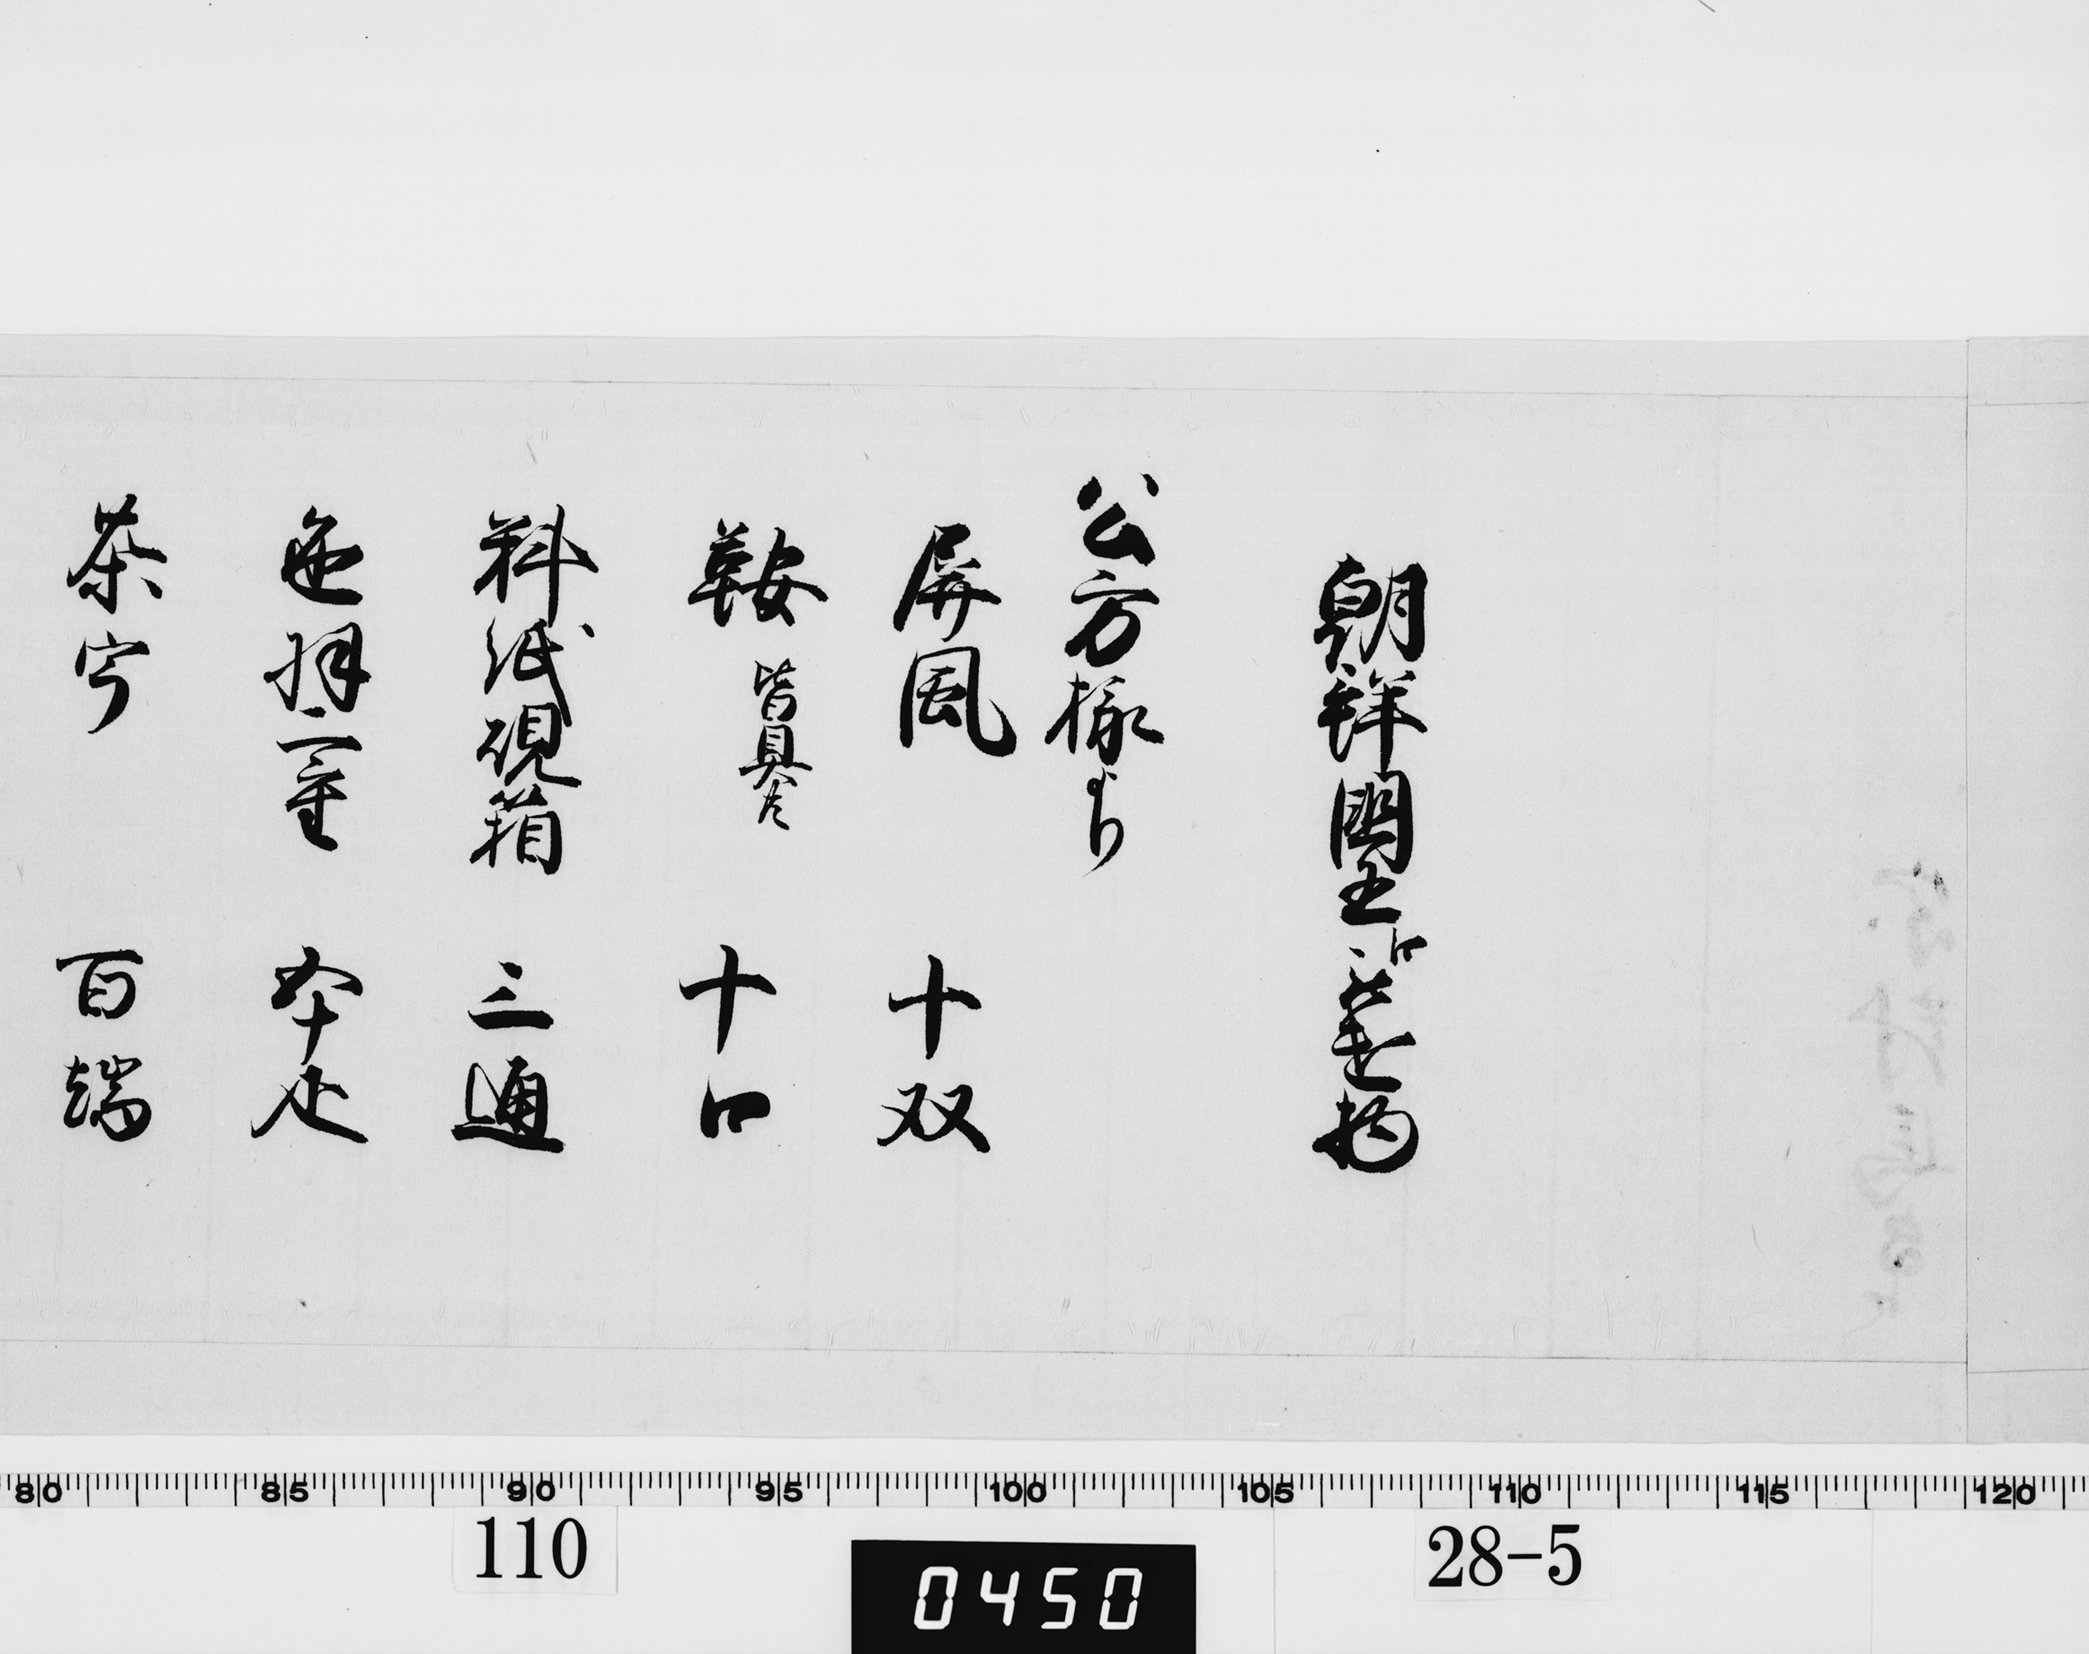 朝鮮国王江被遣物
公方様より
屏風 十双
鞍 皆具共 十口
料紙硯箱 三通
色羽二重 五十疋
茶宇 百端
80 85 90 95 100 105 110 115 120
110
0450
28-5